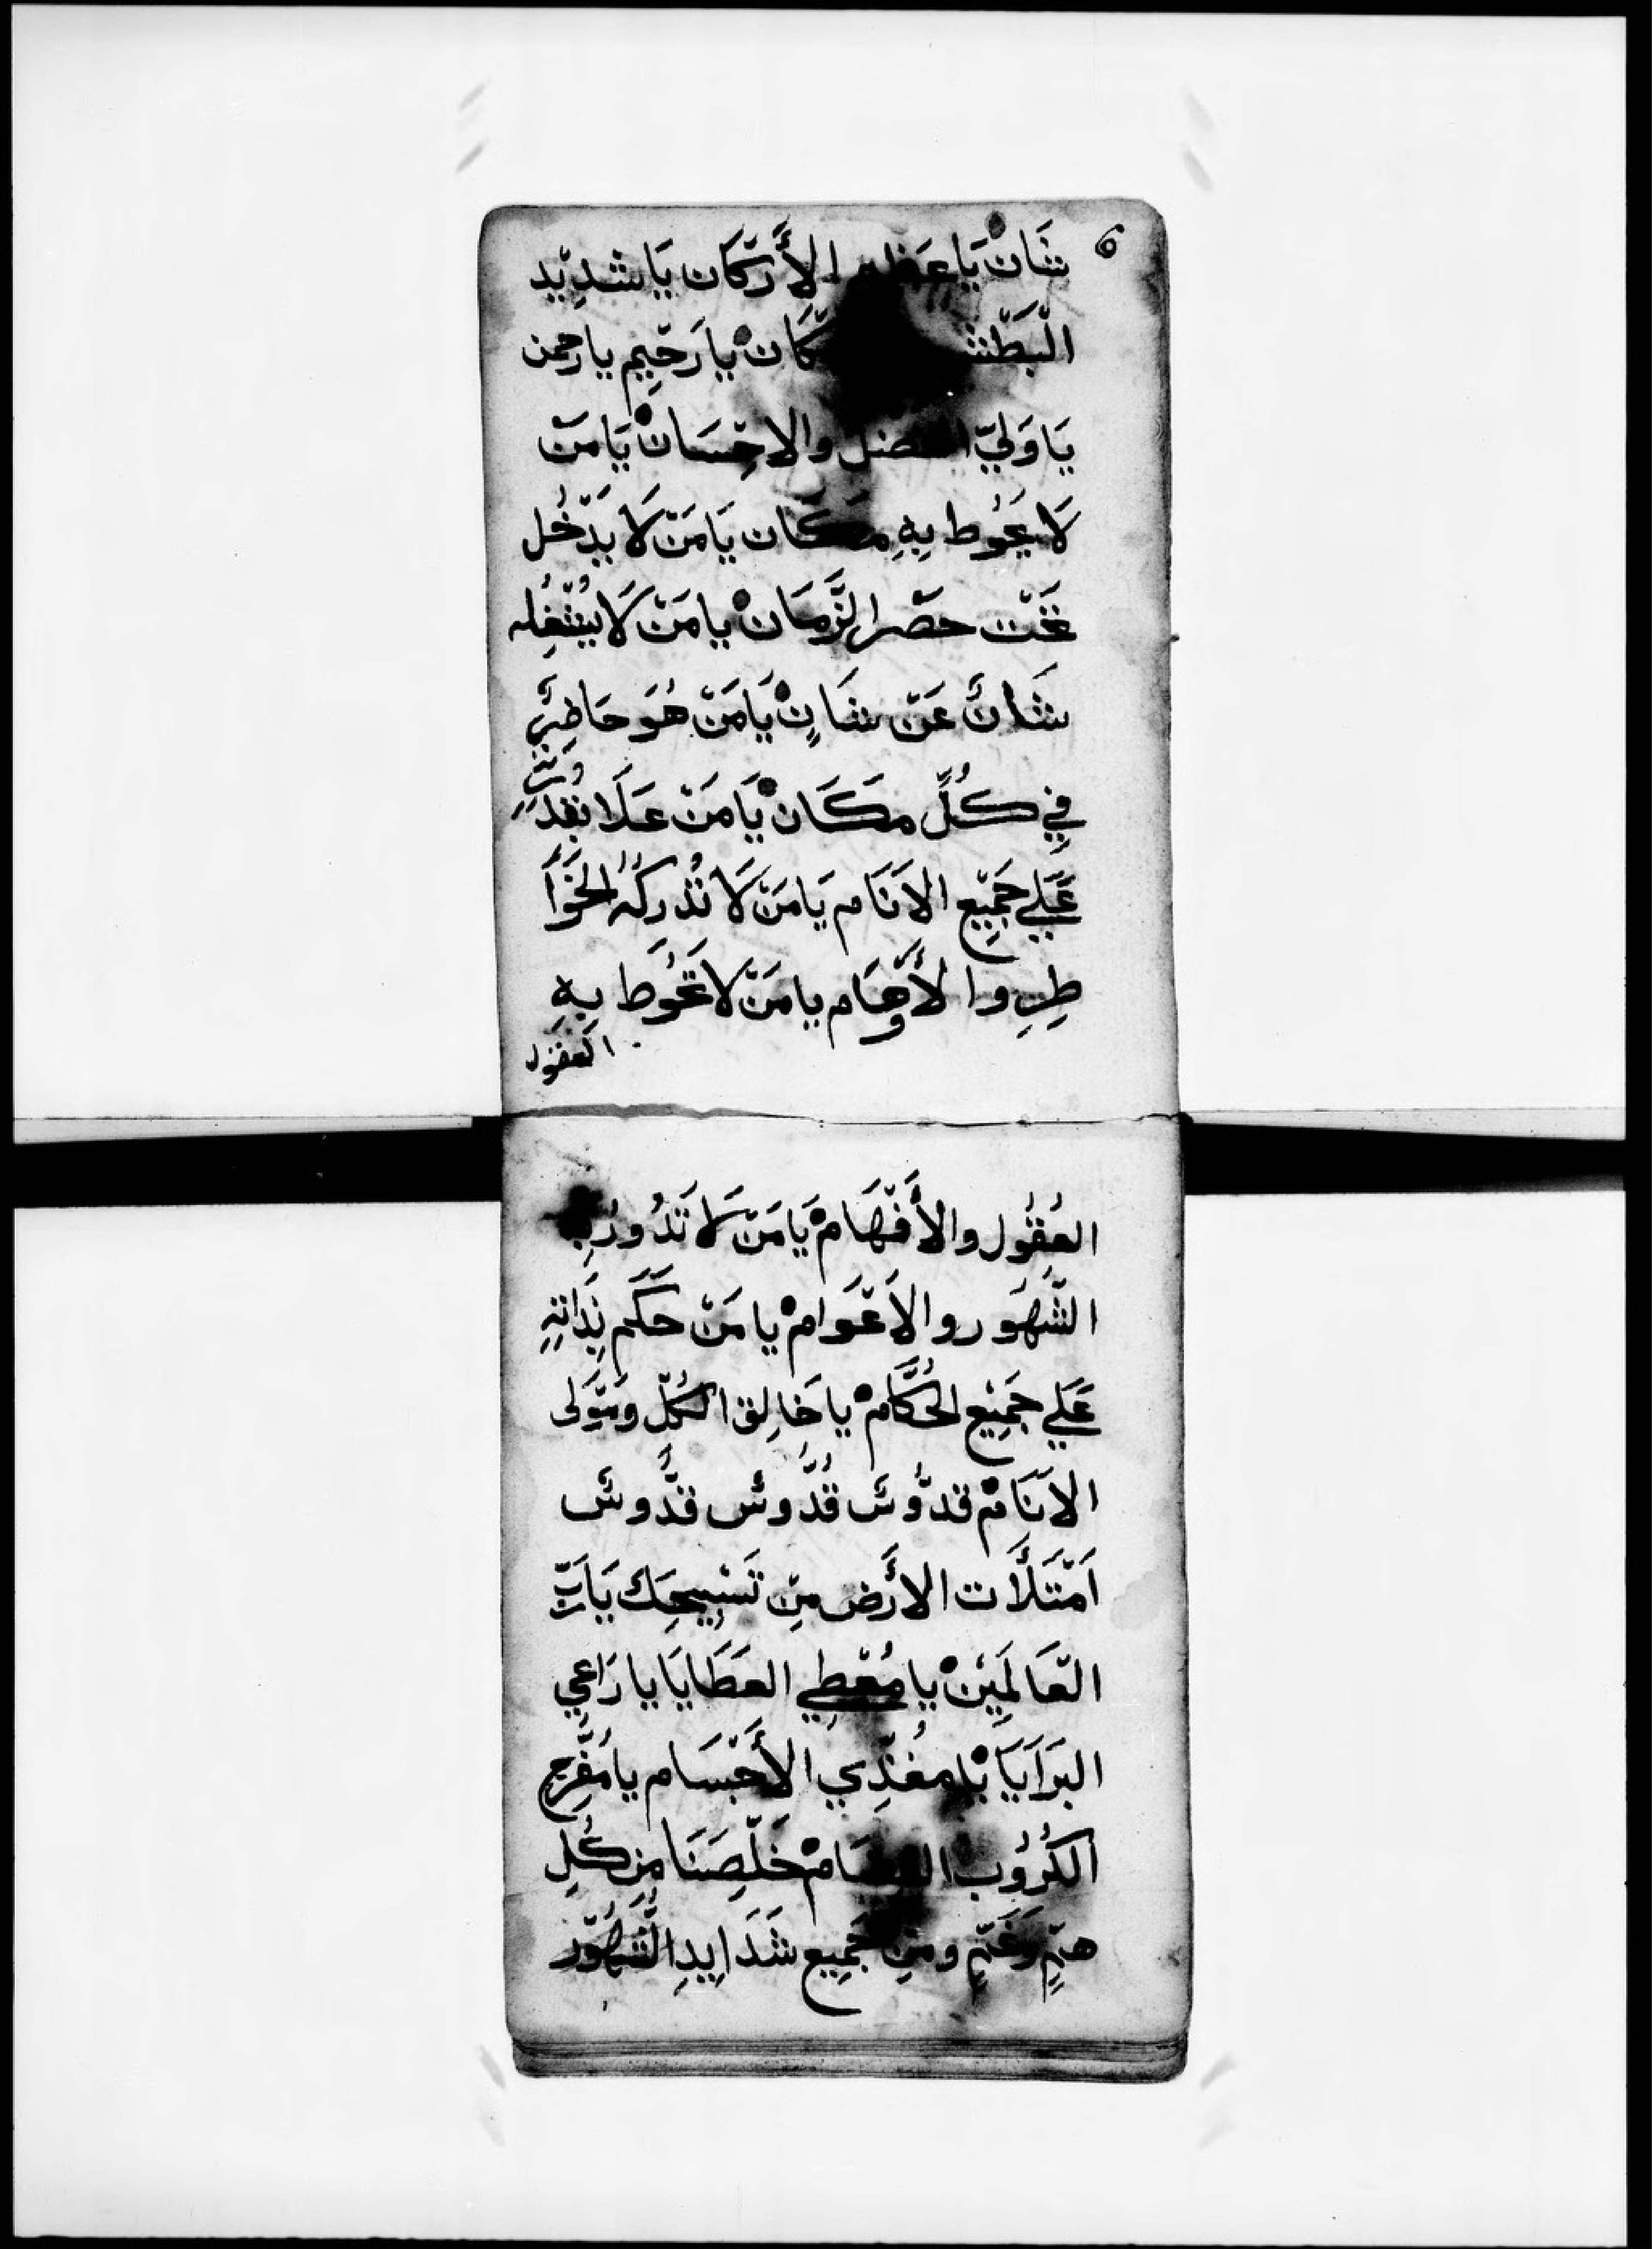 6
شَانْ يَا عَظيم الأَرْكَان يَا شدِيْد
الْبَطْش كَانْ يا رَحِيم يا رحمن
يَا وَلِيّ الفضل والاحْسَانْ يَا مَنْ
لَا يَحُوط بِهِ مكَان يَا مَنْ لَا يَدْخُل
تَحْت حصْر الزَّمَانْ يا مَنْ لَا يُشْغِله
شَانٌ عَنْ شَانٍ يَا مَنْ هُوَ حَاضِرٌ
فِي كُلِّ مكَانْ يَا مَنْ عَلَا بقُدْرَتِهِ
عَلَي جَمِيْع الاَنَام يَا مَنْ لَا تُدْرِكُهُ الخَوَا
طِرِ والأَوْهَام يا مَنْ لَا تَحُوَط بِهِ
العقول
العُقُول والأَفْهَامْ يَا مَنْ لَا تَدُور بِهِ
الشُّهَور والأَعْوَامْ يا مَنْ حَكَم بِذَاتِهِ
عَلَي جَمِيْع الحُكَّامْ يا خَالِق الكُلّ ومْتَولى
الاَنَامْ قدُّوسٌ قُدُّوسٌ قدُّوسٌ
اَمْتَلَأَت الأَرْض مِنْ تَسْبِيحِك يَا رَبّ
الْعَالَمِيْنْ يا مُعْطِي العَطَايَا يا رَاعي
البَرَايَا يَا مغَذِّي الأَجْسَام يا مُفَرِّج
الكُرُوب العظَامْ خَلِّصَنَا مِن كُلِّ
همٍّ وَغَمٍّ ومنِ جَمِيع شَدَايِدِ الشُّهُوْر